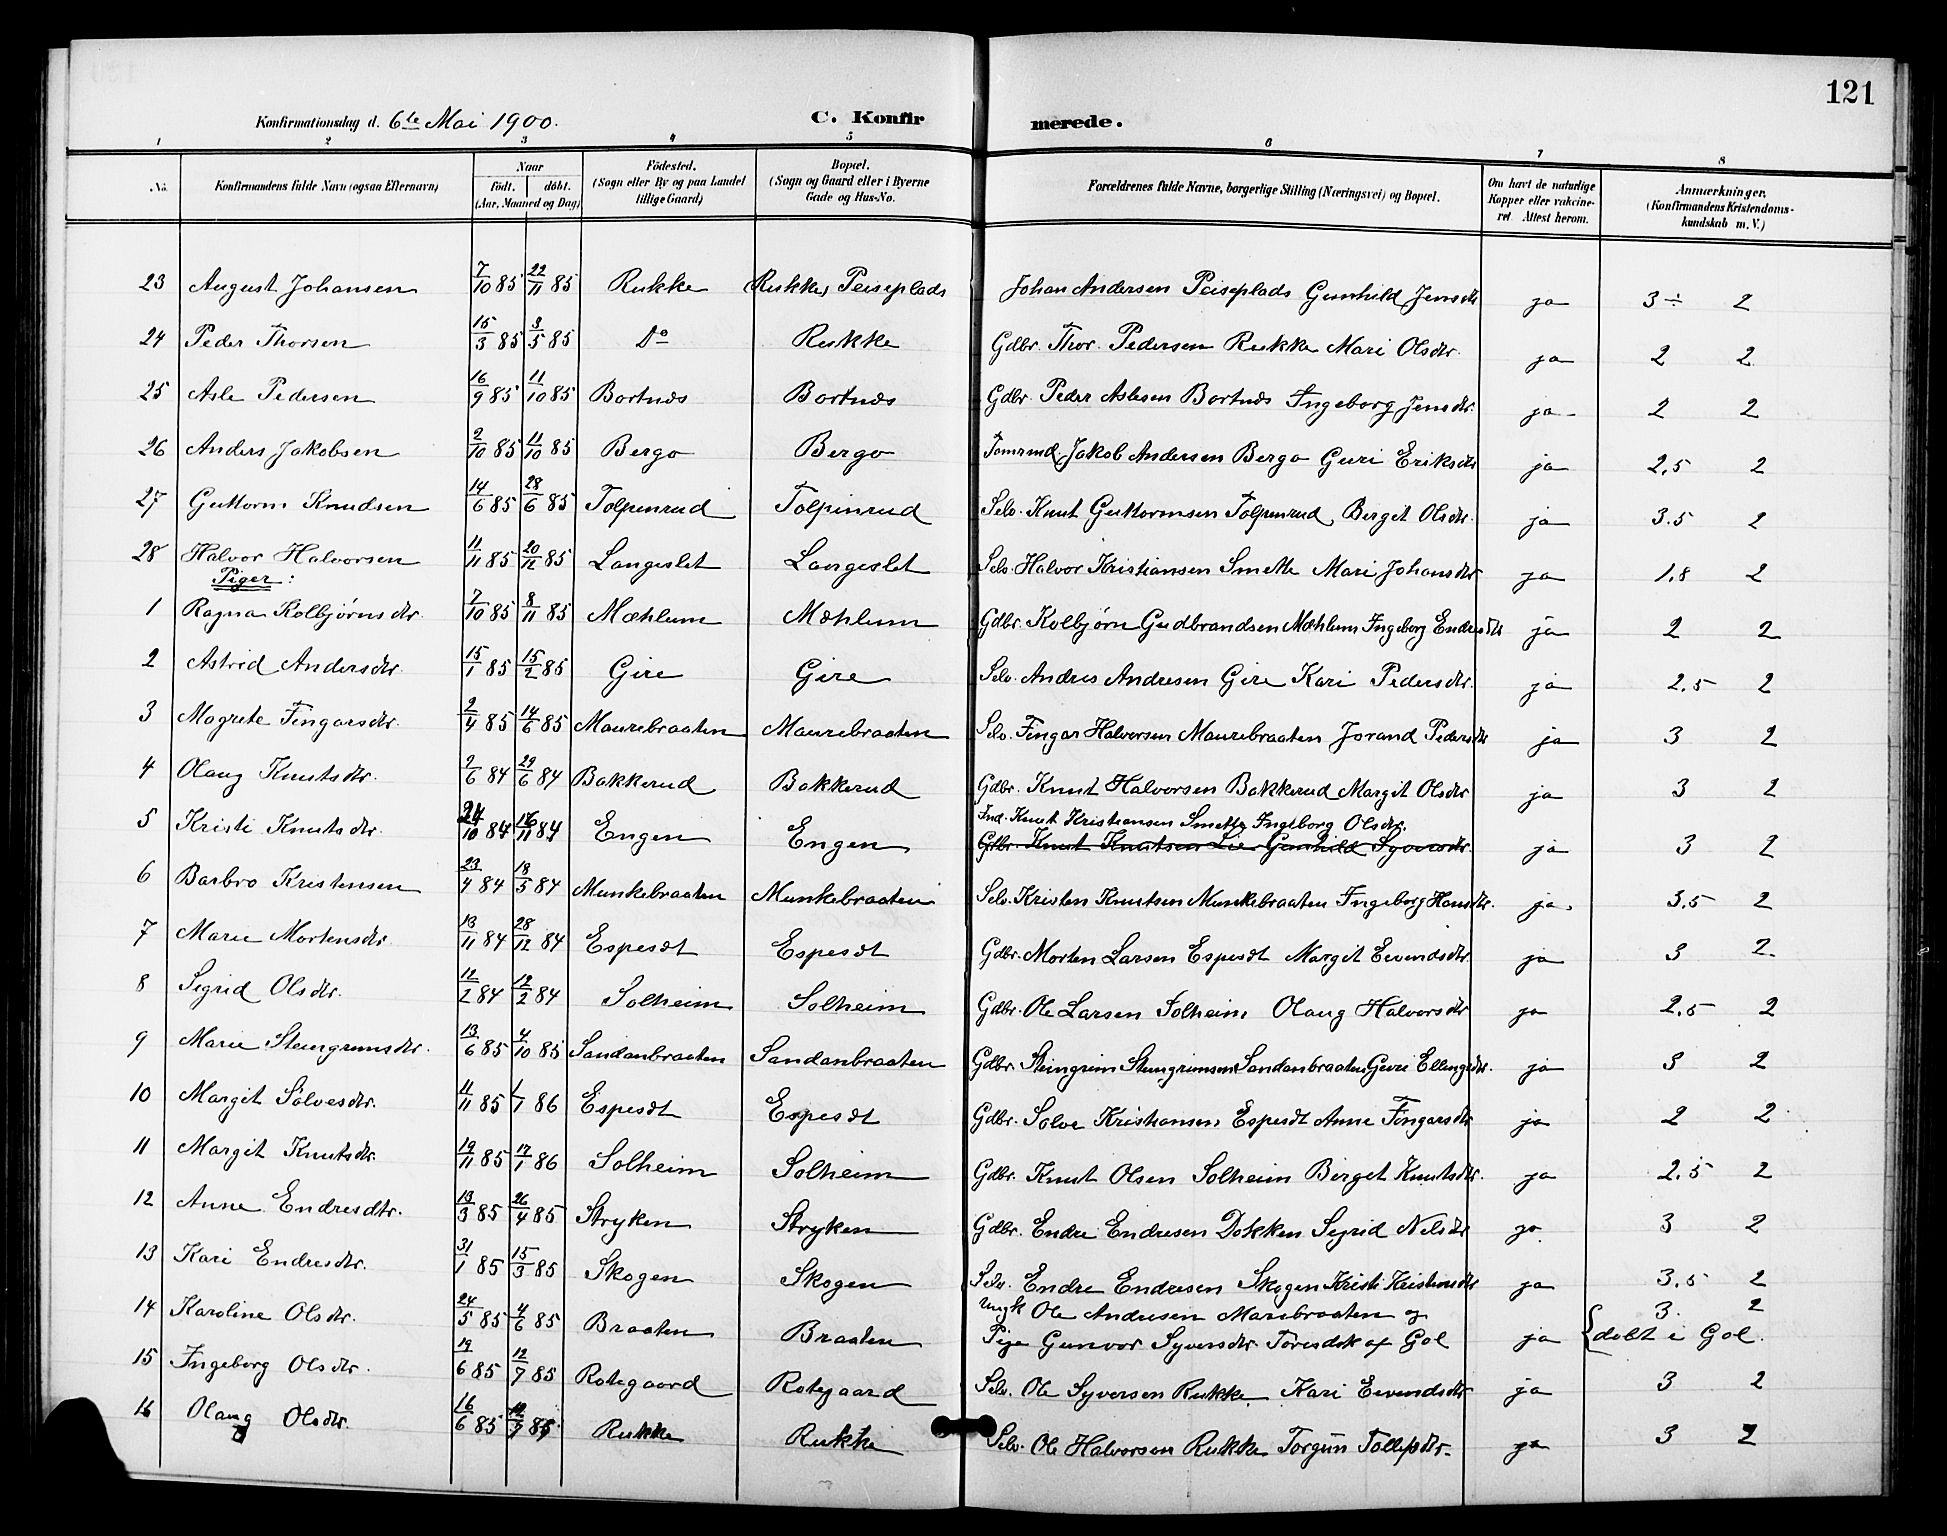 121
Konfirmationsdag d. 6te Mai 1900. C. Konfirmerede.
1 2 3 4 5 6 7 8
No. Konfirmandens fulde Navn (ogsaa Efternavn) Naar født. døbt. (Aar, Maaned og Dag) Fødested. (Sogn eller By og paa Landet tillige Gaard) Bopæl. (Sogn og Gaard eller i Byerne Gade og Hus-No. Forældrenes fulde Navne, borgerlige Stilling (Næringsvei) og Bopæl. Om havt de naturlige Kopper eller vakcineret Attest herom. Anmærkninger. (Konfirmandens Kristendomskundskab m. V.)
23 August Johansen 7/10 85 22/11 85 Rukke Rukke, Peiseplads Johan Andersen Peiseplads Gunhild Jensdtr ja 3÷ 2
24 Peder Thorsen 15/3 85 3/5 85 Do Rukke Gdbr. Thor Pedersen Rukke Mari Olsdtr. ja 2 2
25 Asle Pedersen 16/9 85 11/10 85 Bortnæs Bortnæs Gdbr. Peder Aslesen Bortnæs Ingeborg Jensdtr. ja 2 2
26 Anders Jakobsen 2/10 85 11/10 85 Bergo Bergo Jakob Andersen Bergo Guri Eriksdtr ja 2.5 2
27 Guttorm Knudsen 14/6 85 28/6 85 Tolpinrud Tolpinrud Selv. Knut Guttormsen Tolpinrud, Bergit Olsdtr. ja 3.5 2
28 Halvor Halvorsen 11/11 85 20/12 85 Langeslet Langeslet Selv. Halvor Kristiansen Smette Mari Johansdtr ja 1.8 2
Piger:
1 Ragna Kolbjørnsdtr. 7/10 85 8/11 85 Mæhlum Mæhlum Gdbr. Kolbjørn Gudbrandsen Mæhlum Ingeborg Endresdtr ja 2 2
2 Astrid Andersdtr. 15/1 85 15/2 85 Gire Gire Selv. Andres Andresen Gire Kari Pedersdtr. ja 2.5 2
3 Magrete Fingarsdtr. 2/4 85 14/6 85 Maurebraaten Maurebraaten Selv. Fingar Halvorsen Maurebraaten Jorand Pedersdtr ja 3 2
4 Olaug Knutsdtr. 2/6 84 29/6 84 Bakkerud Bakkerud Gdbr. Knut Halvorsen Bakkerud Margit Olsdtr ja 3 2
Ind. Knut Kristiansen Smette Ingeborg Olsdtr.
5 Kristi Knutsdtr. 24/10 84 16/11 84 Engen Engen Gdbr. Knut Knutsen Lie Gunhild Syversdtr. ja 3 2
6 Barbro Kristensen 23/4 84 18/5 84 Munkebraaten Munkebraaten Selv. Kristen Knutsen Munkebraaten Ingeborg Hansdtr. ja 3.5 2
7 Marie Mortensdtr 13/11 84 28/12 84 Espesdt Espesdt Gdbr. Morten Larsen Espesdt Margit Eivendsdtr ja 3 2
8 Sigrid Olsdtr. 12/2 84 Solheim Solheim Gdbr. Ole Larsen Solheim Olaug Halvorsdtr ja 2.5 2
9 Marie Steingrimsdtr. 13/6 85 4/10 85 Sandanbraaten Sandanbraaten Gdbr. Steingrim Steingrimsen Sandanbraaten Guri Ellingsdtr. ja 3 2
10 Margit Sølvesdtr. 11/11 85 1/1 86 Espesdt Espesdt Gdbr. Sølve Kristiansen Espesdt Anne Fingarsdtr ja 2 2
11 Margit Knutsdtr. 19/11 85 17/1 86 Solheim Solheim Gdbr. Knut Olsen Solheim Birget Knutsdtr. ja 2.5 2
12 Anne Endresdtr. 13/3 85 26/4 85 Stryken Stryken Gdbr. Endre Endresen Dokken Sigrid Nilsdtr ja 3 2
13 Kari Endresdtr. 31/1 85 15/3 85 Skogen Skogen Selv. Endre Endresen Skogen Kristi Kristensdtr ja 3.5 2
14 Karoline Olsdtr. 24/5 85 4/6 85 Braaten Braaten Ungk Ole Andresen Marebraaten og 3. 2
Pige Gunvor Syversdtr. Toresdok af Gol ja {døbt i Gol.
15 Ingeborg Olsdtr. 19/6 85 12/7 85 Rotegaard Rotegaard Selv. Ole Syversen Rukke Kari Eivendsdtr ja 3 2
16 Olaug Olsdtr. 16/6 85 Rukke Rukke Selv. Ole Halvorsen Rukke Torgun Tollefsdtr. ja 3 2